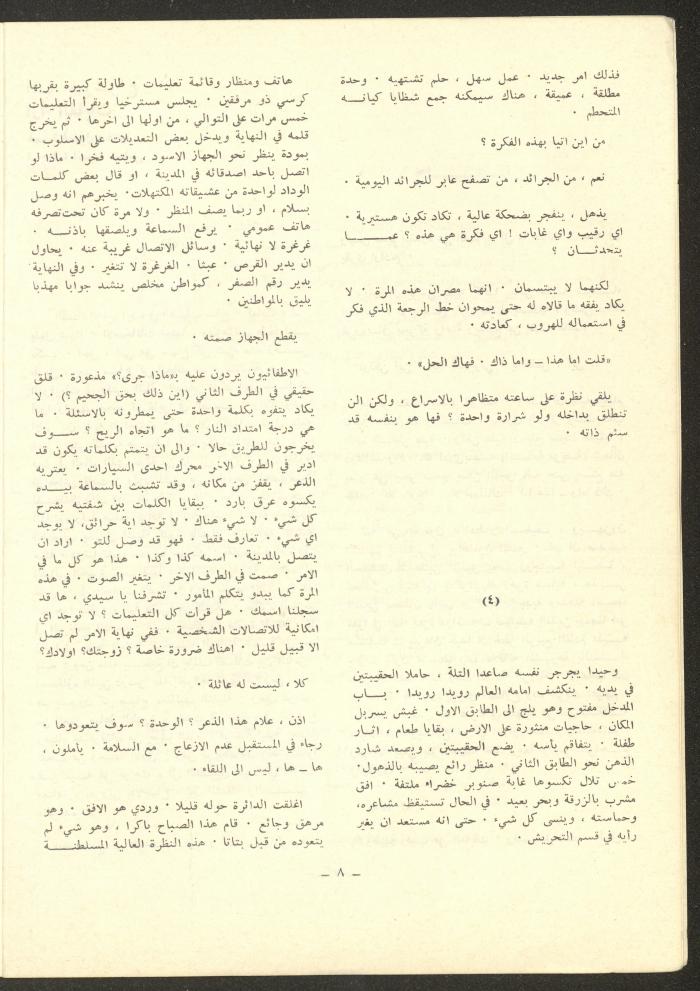 فذلك امر جديد ٠ عمل سهل ، حلم تشتهيه ٠ وحدة
مطلقة ، عميقة ، هناك سيمكنه جمع شظايا كيانه
المتحطم ٠
من اين اتيا بهذه الفكرة ؟
نعم ، من الجرائد ، من تصفح عابر للجرائد اليومية ٠
يذهل ، ينفجر بضحكة عالية ، تكاد تكون هستيرية ٠
اي رقيب واي غابات ! اي فكرة هي هذه ؟ عما
يتحدثان ؟
لكنهما لا يبتسمان ٠ انهما مصران هذه المرة ٠ لا
يكاد يفقه ما قالاه له حتى يمحوان خط الرجعة الذي فكر
في استعماله للهروب ، كعادته ٠
«قلت اما هذا – واما ذاك ٠ فهاك الحل» ٠
يلقي نظرة على ساعته متظاهرا بالاسراع ، ولكن الن
تنطلق بداخله ولو شرارة واحدة ؟ فها هو بنفسه قد
سئم ذاته ٠
(٤)
وحيدا يجرجر نفسه صاعدا التلة ، حاملا الحقيبتين
في يديه ٠ ينكشف امامه العالم رويدا رويدا ٠ باب
المدخل مفتوح وهو يلج الى الطابق الاول ٠ غبش يسربل
المكان ، حاجيات منثورة على الارض ، بقايا طعام ، اثار
طفلة ٠ يتفاقم يأسه ٠ يضع الحقيبتين ، ويصعد شارد
الذهن نحو الطابق الثاني ٠ منظر رائع يصيبه بالذهول٠
خمس تلال تكسوها غابة صنوبر خضراء ملتفة ٠ افق
مشرب بالزرقة وبحر بعيد ٠ في الحال تستيقظ مشاعره،
وحماسته ، وينسى كل شيء ٠ حتى انه مستعد ان يغير
رأيه في قسم التحريش ٠
هاتف ومنظار وقائمة تعليمات ٠ طاولة كبيرة بقربها
كرسي ذو مرفقين ٠ يجلس مسترخيا ويقرأ التعليمات
خمس مرات على التوالي ، من اولها الى اخرها ٠ ثم يخرج
قلمه في النهاية ويدخل بعض التعديلات على الاسلوب ٠
بمودة ينظر نحو الجهاز الاسود ، ويتيه فخرا ٠ ماذا لو
اتصل باحد اصدقائه في المدينة ، او قال بعض كلمات
الوداد لواحدة من عشيقاته المكتهلات٠ يخبرهم انه وصل
بسلام ، او ربما يصف المنظر ٠ ولا مرة كان تحت تصرفه
هاتف عمومي ٠ يرفع السماعة ويلصقها باذنه ٠
غرغرة لا نهائية ٠ وسائل الاتصال غريبة عنه ٠ يحاول
ان يدير القرص ٠ عبثا ٠ الغرغرة لا تتغير ٠ وفي النهاية
يدير رقم الصفر ، كمواطن مخلص ينشد جوابا مهذبا
يليق بالمواطنين ٠
يقطع الجهاز صمته ٠
الاطفائيون يردون عليه بـ«ماذا جرى؟» مذعورة ٠ قلق
حقيقي في الطرف الثاني (اين ذلك بحق الجحيم ؟) ٠ لا
يكاد يتفوه بكلمة واحدة حتى يمطرونه بالاسئلة ٠ ما
هي درجة امتداد النار ؟ ما هو اتجاه الريح ؟ سوف
يخرجون للطريق حالا ٠ والى ان يتمتم بكلماته يكون قد
ادير في الطرف الاخر محرك احدى السيارات ٠ يعتريه
الذعر ، يقفز من مكانه ، وقد تشبث بالسماعة بيده
يكسوه عرق بارد ٠ ببقايا الكلمات بين شفتيه يشرح
كل شيء ٠ لا شيء هناك ٠ لا توجد اية حرائق، لا يوجد
اي شيء ٠ تعارف فقط ٠ فهو قد وصل للتو ٠ اراد ان
يتصل بالمدينة ٠ اسمه كذا وكذا ٠ هذا هو كل ما في
الامر ٠ صمت في الطرف الاخر ٠ يتغير الصوت ٠ في هذه
المرة كما يبدو يتكلم المأمور ٠ تشرفنا يا سيدي ، ها قد
سجلنا اسمك ٠ هل قرأت كل التعليمات ؟ لا توجد اي
امكانية للاتصالات الشخصية ٠ ففي نهاية الامر لم تصل
الا قبيل قليل ٠ اهناك ضرورة خاصة ؟ زوجتك؟ اولادك؟
كلا ، ليست له عائلة ٠
اذن ، علام هذا الذعر ؟ الوحدة ؟ سوف يتعودها ٠
رجاء في المستقبل عدم الازعاج ٠ مع السلامة ٠ يأملون ،
ها – ها ، ليس الى اللقاء ٠
اغلقت الدائرة حوله قليلا ٠ وردي هو الافق ٠ وهو
مرهق وجائع ٠ قام هذا الصباح باكرا ، وهو شيء لم
يتعوده من قبل بتاتا ٠ هذه النظرة العالية المسلطنة
– ٨ –